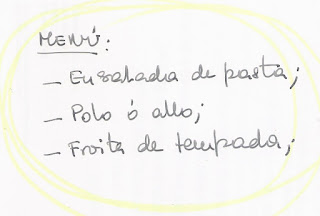 MENÚ:
- Ensalada de pasta;
- Polo ó allo;
- Froita de tempada;